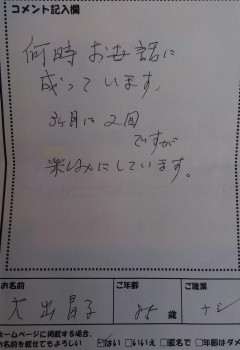 コメント記入欄
何時お世話に
成っています、
3ヶ月に2回
ですが
楽しみにしています。
お名前
ご年齢
ご職業
大出昌子
85歳
ナシ
ホームページに掲載する場合、
お名前を載せてもよろしい
はい □いいえ □匿名で □年齢はダメ